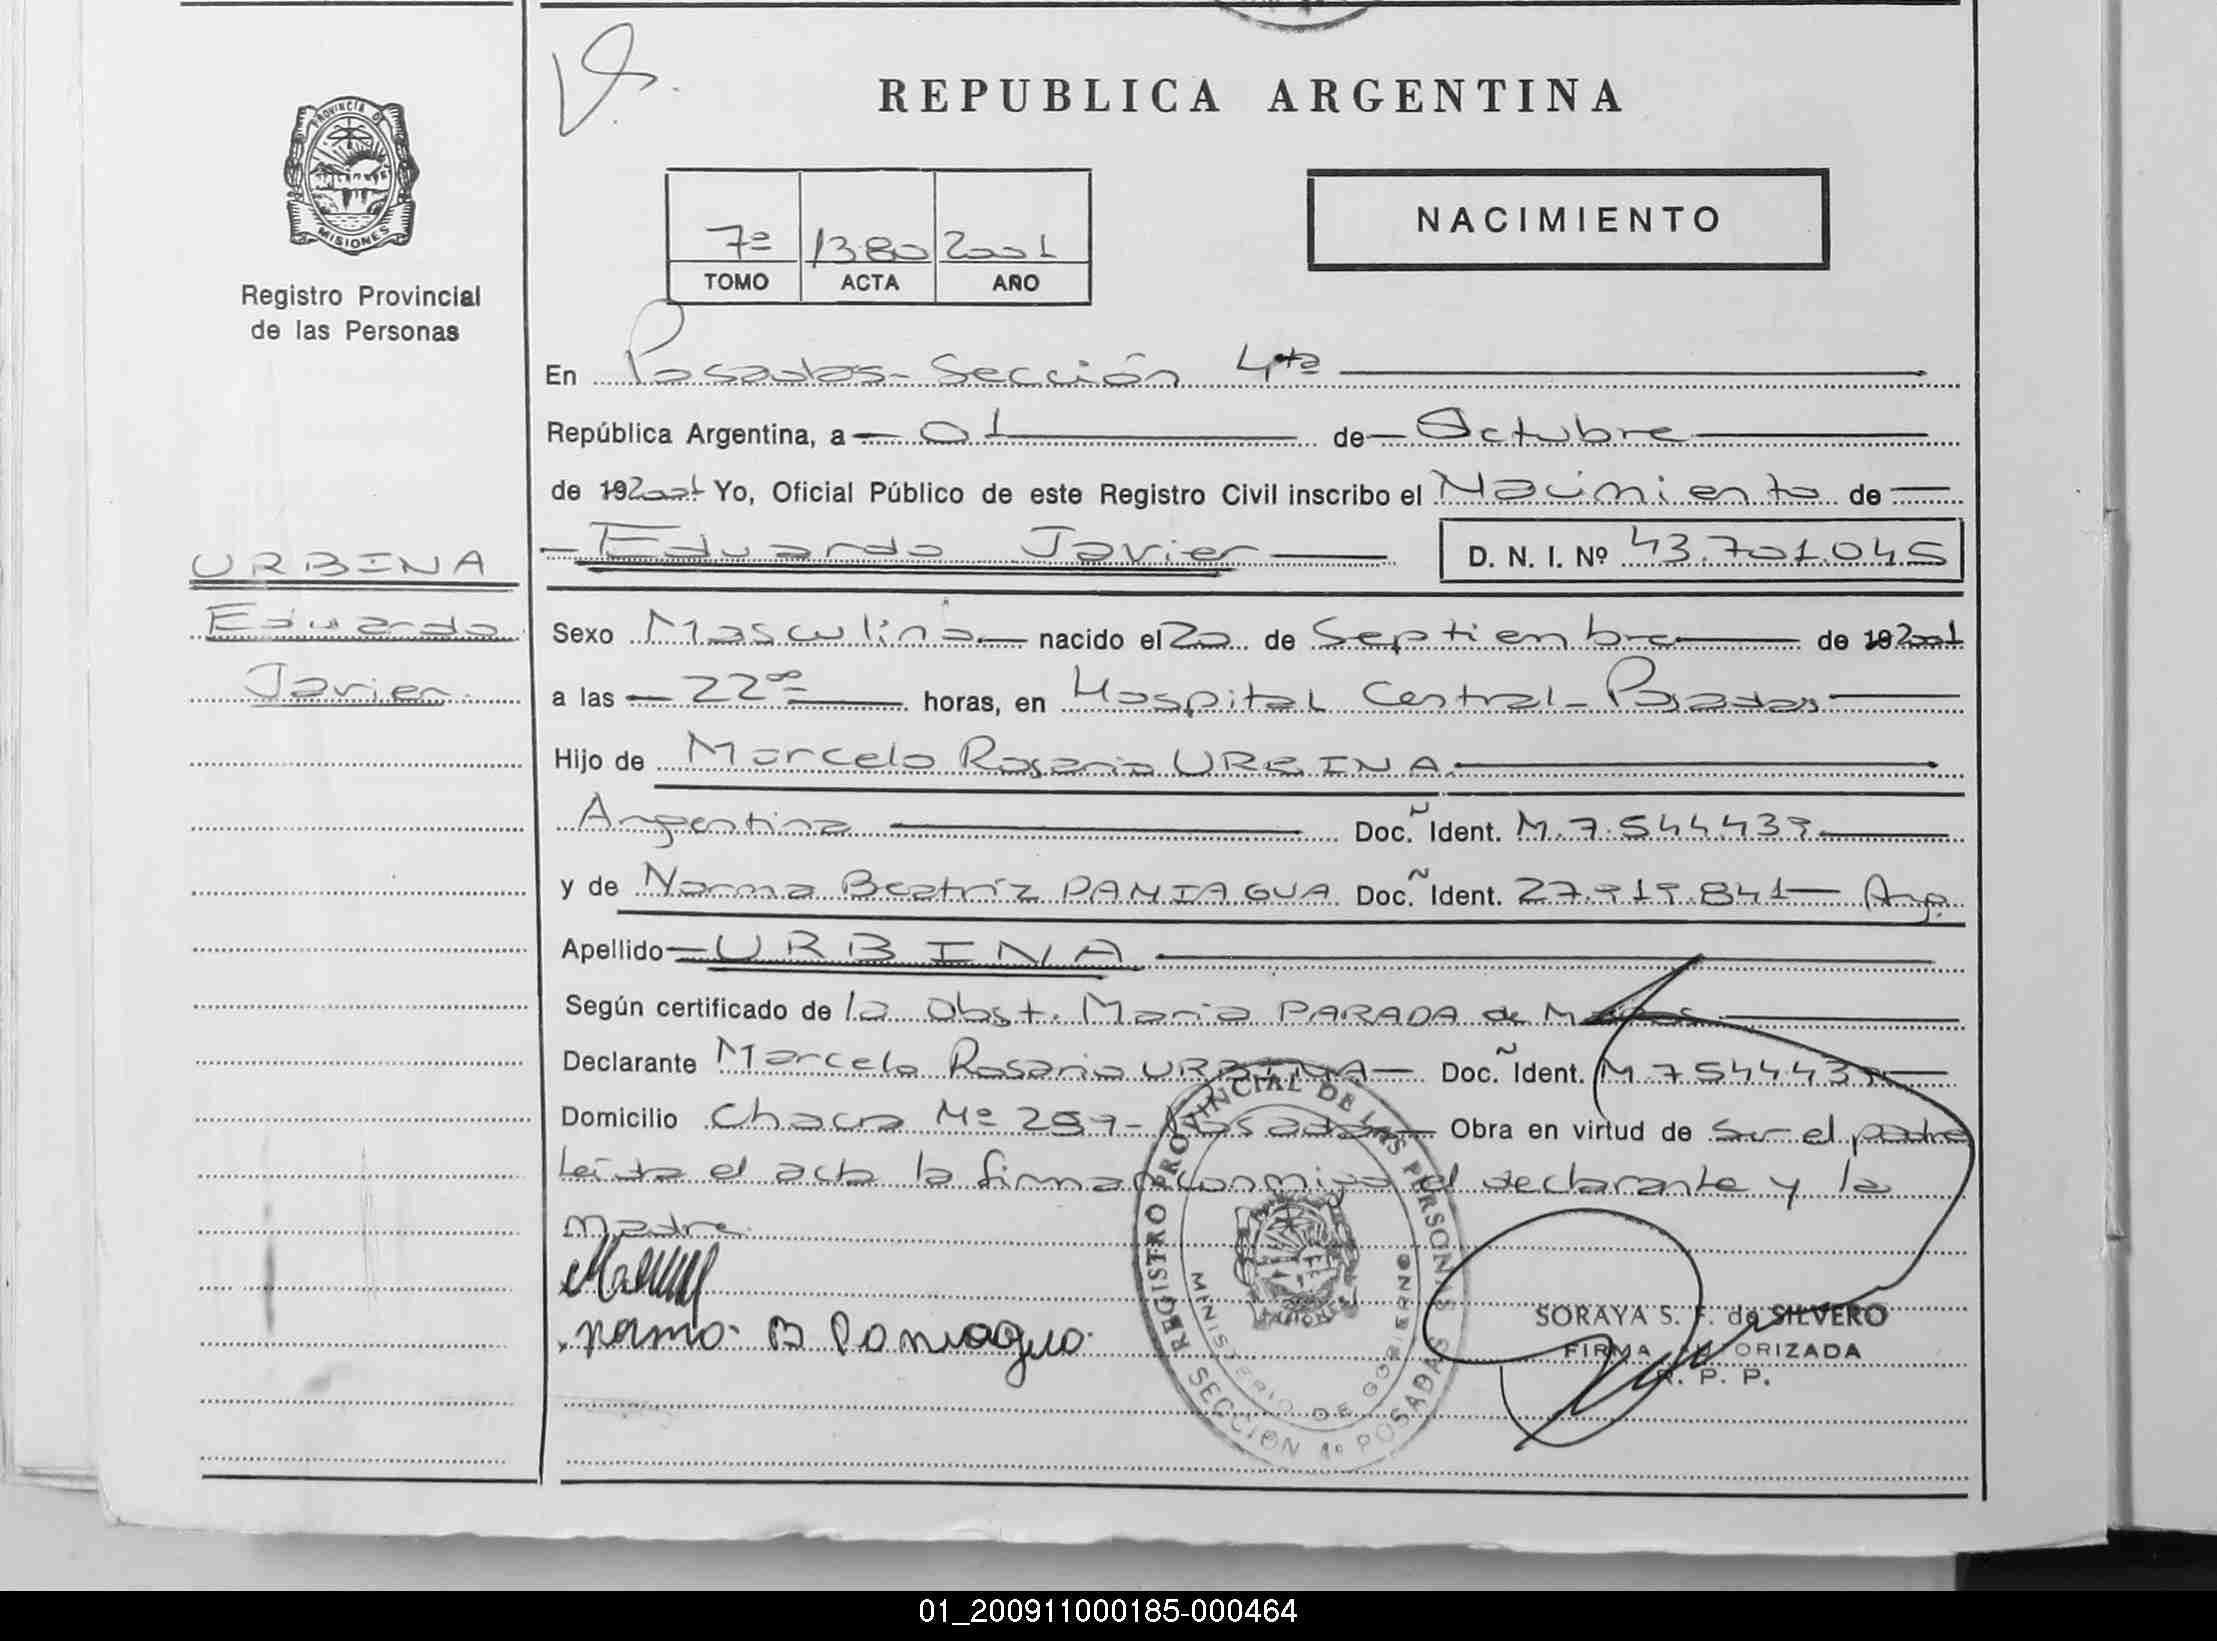 REPUBLICA ARGENTINA
PROVINCIA DE
MISIONES
Registro Provincial
de las Personas
7º 1380 2001
TOMO ACTA AÑO
NACIMIENTO
En Posadas - Sección 4ta
República Argentina, a 01 de Octubre
de 192001 Yo, Oficial Público de este Registro Civil inscribo el Nacimiento de
Eduardo Javier D. N. I. Nº 43.701.045
URBINA
Eduardo
Javier
Sexo Masculino nacido el 20 de Septiembre de 192001
a las 22 00 horas, en Hospital Central - Posadas
Hijo de Marcelo Rosario URBINA
Argentina Doc. Ident. M.7.544.439
y de Norma Beatriz PANIAGUA Doc. Ident. 27.919.841 Arg.
Apellido URBINA
Según certificado de la Obst. Maria PARADA de
Declarante Marcelo Rosario URBINA Doc. Ident. M.7544439
Domicilio Chacra Nº 259 - Posadas Obra en virtud de Ser el padre
Leída el acta la firman conmigo el declarante y la
madre.
norma B Paniagua
REGISTRO PROVINCIAL DE LAS PERSONAS
MINISTERIO DE GOBIERNO
SECCION 4º POSADAS
SORAYA S. F. de SILVERO
FIRMA AUTORIZADA
R. P. P.
01_200911000185-000464